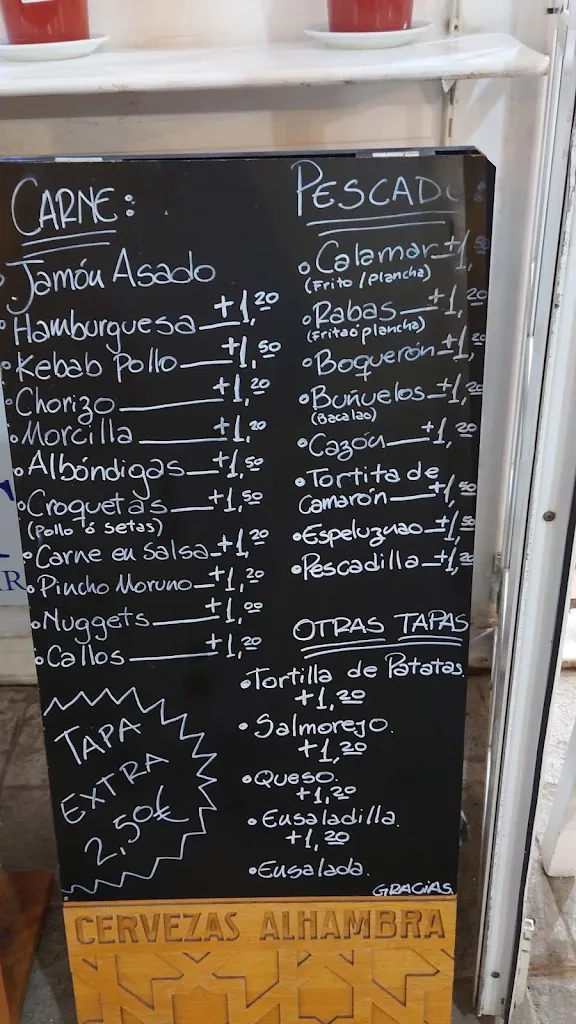 CARNE:
Jamón Asado
Hamburguesa +1,20
Kebab Pollo +1,50
Chorizo +1,20
Morcilla +1,20
Albóndigas +1,50
Croquetas +1,50
(Pollo ó Setas)
Carne en Salsa +1,20
Pincho Moruno +1,20
Nuggets +1,00
Callos +1,20
TAPA
EXTRA
2,50€
PESCADO
Calamar +1,50
(Frito / plancha)
Rabas +1,20
(Frita ó plancha)
Boquerón +1,20
Buñuelos +1,20
(Bacalao)
Cazón +1,20
Tortita de
Camarón +1,50
Espeluznao +1,50
Pescadilla +1,20
OTRAS TAPAS
Tortilla de Patatas.
+1,20
Salmorejo.
+1,20
Queso.
+1,20
Ensaladilla.
+1,20
Ensalada.
GRACIAS
CERVEZAS ALHAMBRA